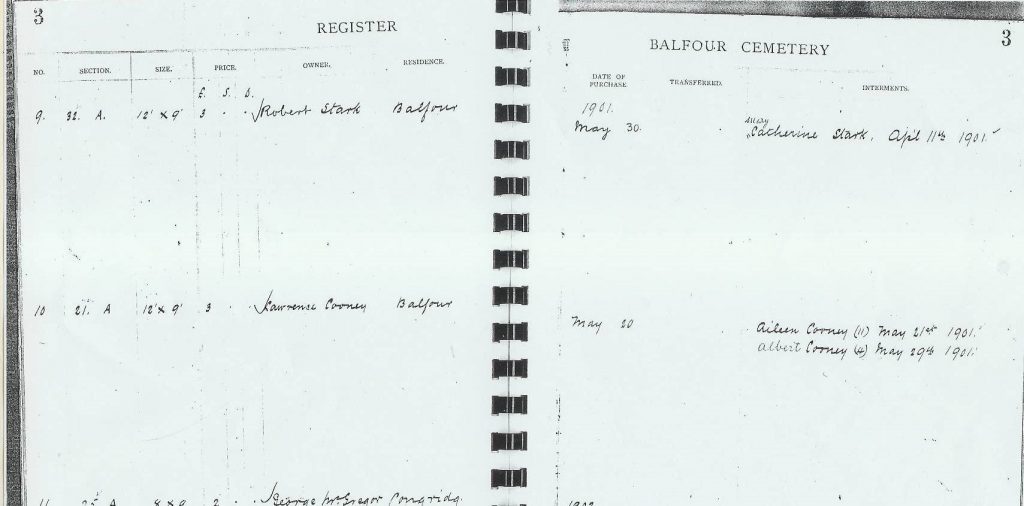 3
REGISTER
NO. SECTION. SIZE. PRICE. OWNER. RESIDENCE.
£. S. D.
9. 32. A. 12' x 9' 3 . . Robert Stark Balfour
10 21. A 12' x 9' 3 . . Lawrence Cooney Balfour
11 25 A 8 x 9 2 . . George McGregor
BALFOUR CEMETERY
3
DATE OF PURCHASE TRANSFERRED. INTERMENTS.
1901.
May 30. Catherine Stark. Apl 11th 1901.
May 20 Aileen Cooney (11) May 21st 1901.
Albert Cooney (4) May 29th 1901.
1902